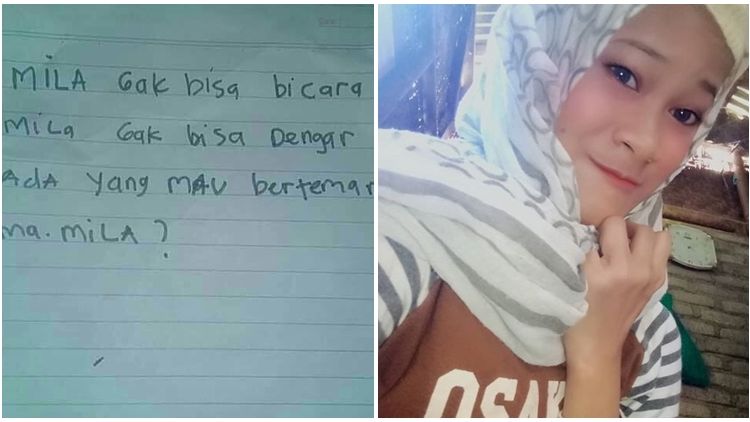 MiLA Gak bisa bicara
MiLa Gak bisa Dengar
AdA yang MAU berteman
ma. MiLA ?
OSAK